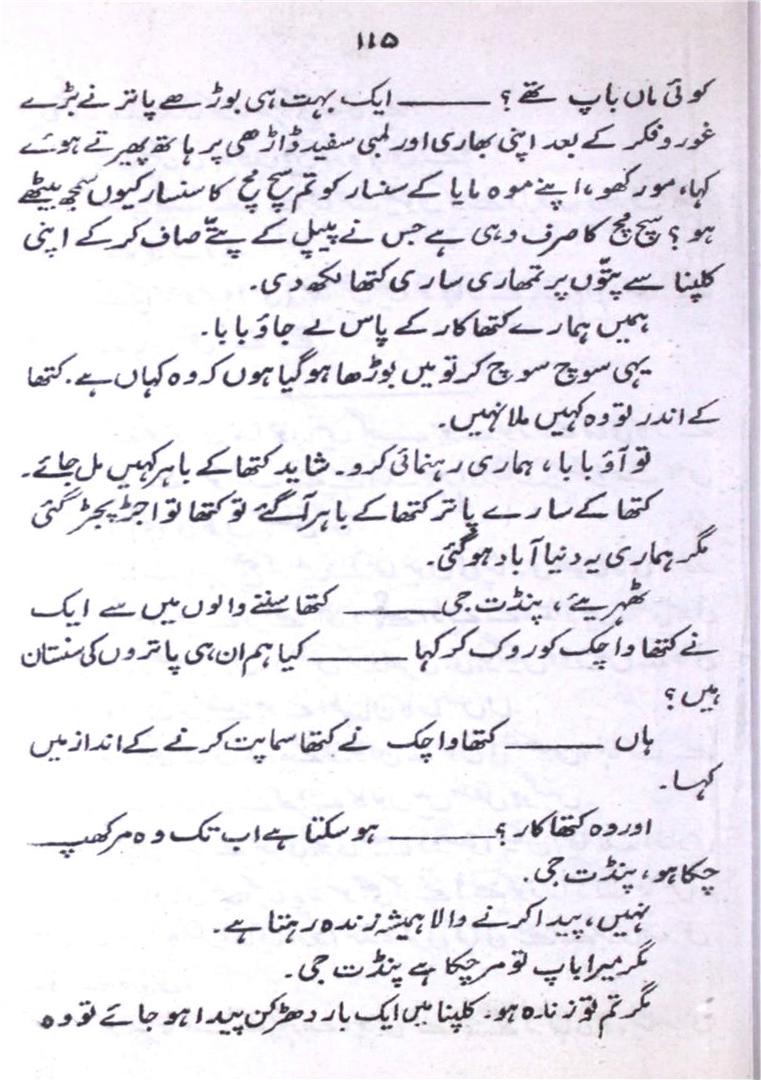 ۱۱۵
کوئی ماں باپ تھے؟ ——— ایک بہت ہی بوڑھے پاتر نے بڑے
غور و فکر کے بعد اپنی بھاری اور لمبی سفید ڈاڑھی پر ہاتھ پھیرتے ہوئے
کہا، مورکھو، اپنے موہ مایا کے سنسار کو تم سچ مچ کا سنسار کیوں سمجھ بیٹھے
ہو؟ سچ مچ کا صرف وہی ہے جس نے پیپل کے پتّے صاف کر کے اپنی
کلپنا سے پتّوں پر تمھاری ساری کتھا لکھ دی۔
ہمیں ہمارے کتھا کار کے پاس لے جاؤ بابا۔
یہی سوچ سوچ کر تو میں بوڑھا ہو گیا ہوں کہ وہ کہاں ہے۔ کتھا
کے اندر تو وہ کہیں ملا نہیں۔
تو آؤ بابا، ہماری رہنمائی کرو۔ شاید کتھا کے باہر کہیں مل جائے۔
کتھا کے سارے پاتر کتھا کے باہر آ گئے تو کتھا تو اجڑ پجڑ گئی
مگر ہماری یہ دنیا آباد ہو گئی۔
ٹھہریئے، پنڈت جی ——— کتھا سننے والوں میں سے ایک
نے کتھا واچک کو روک کر کہا ——— کیا ہم ان ہی پاتروں کی سنتان
ہیں؟
ہاں ——— کتھا واچک نے کتھا سماپت کرنے کے انداز میں
کہا۔
اور وہ کتھا کار؟ ——— ہو سکتا ہے اب تک وہ مر کھپ
چکا ہو، پنڈت جی۔
نہیں، پیدا کرنے والا ہمیشہ زندہ رہتا ہے۔
مگر میرا باپ تو مر چکا ہے پنڈت جی۔
مگر تم تو زندہ ہو۔ کلپنا میں ایک بار دھڑکن پیدا ہو جائے تو وہ